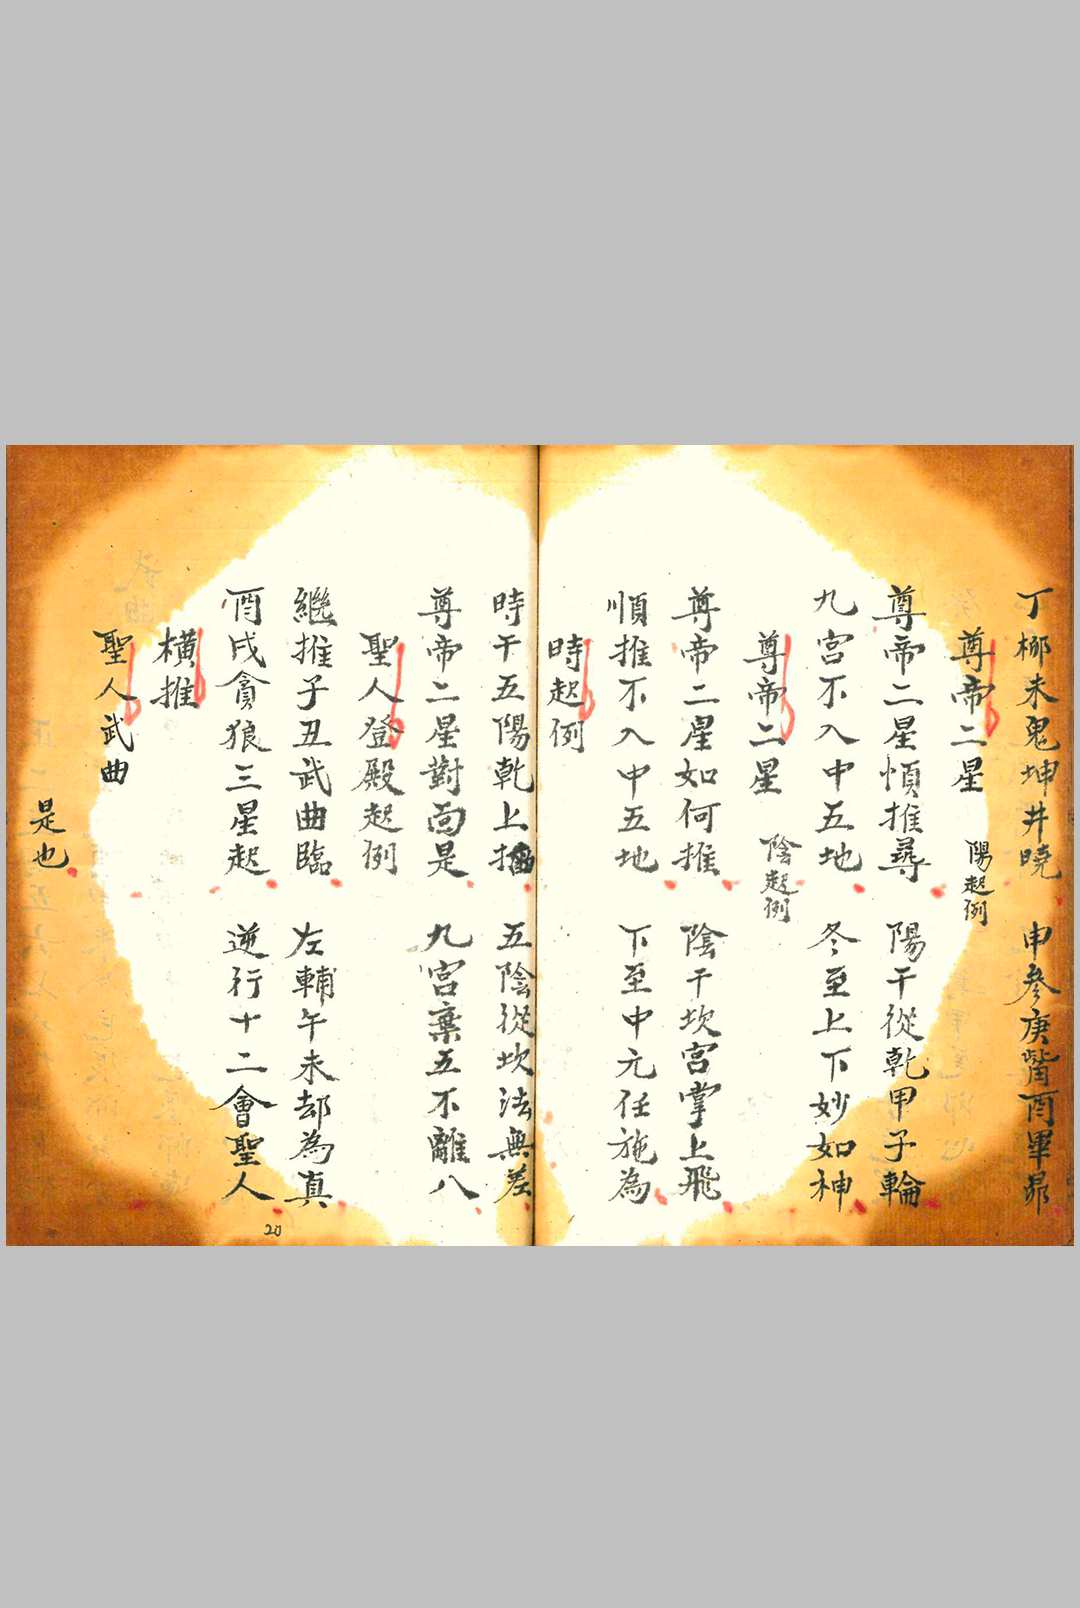 丁柳未鬼坤井曉 申參庚觜酉畢昴
尊帝二星 陽起例
尊帝二星慎推尋 陽干從乾甲子輪
九宮不入中五地 冬至上下妙如神
尊帝二星 陰起例
尊帝二星如何推 陰干坎宮掌上飛
順推不入中五地 下至中元任施為
時起例
時干五陽乾上 五陰從坎法無差
尊帝二星對面是 九宮棄五不離八
聖人登殿起例
繼推子丑武曲臨 左輔午未却為真
酉戌貪狼三星起 逆行十二會聖人
橫推
聖人武曲
是也
20